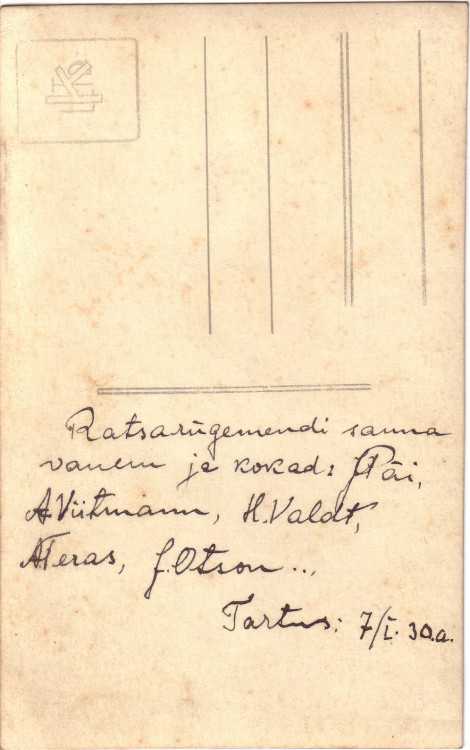 Ratsarügemendi sauna
vanem ja kokad: J. Päi,
A. Viitmann, H. Valdt,
A. Teras, J. Otson...
Tartus: 7/I. 30.a.